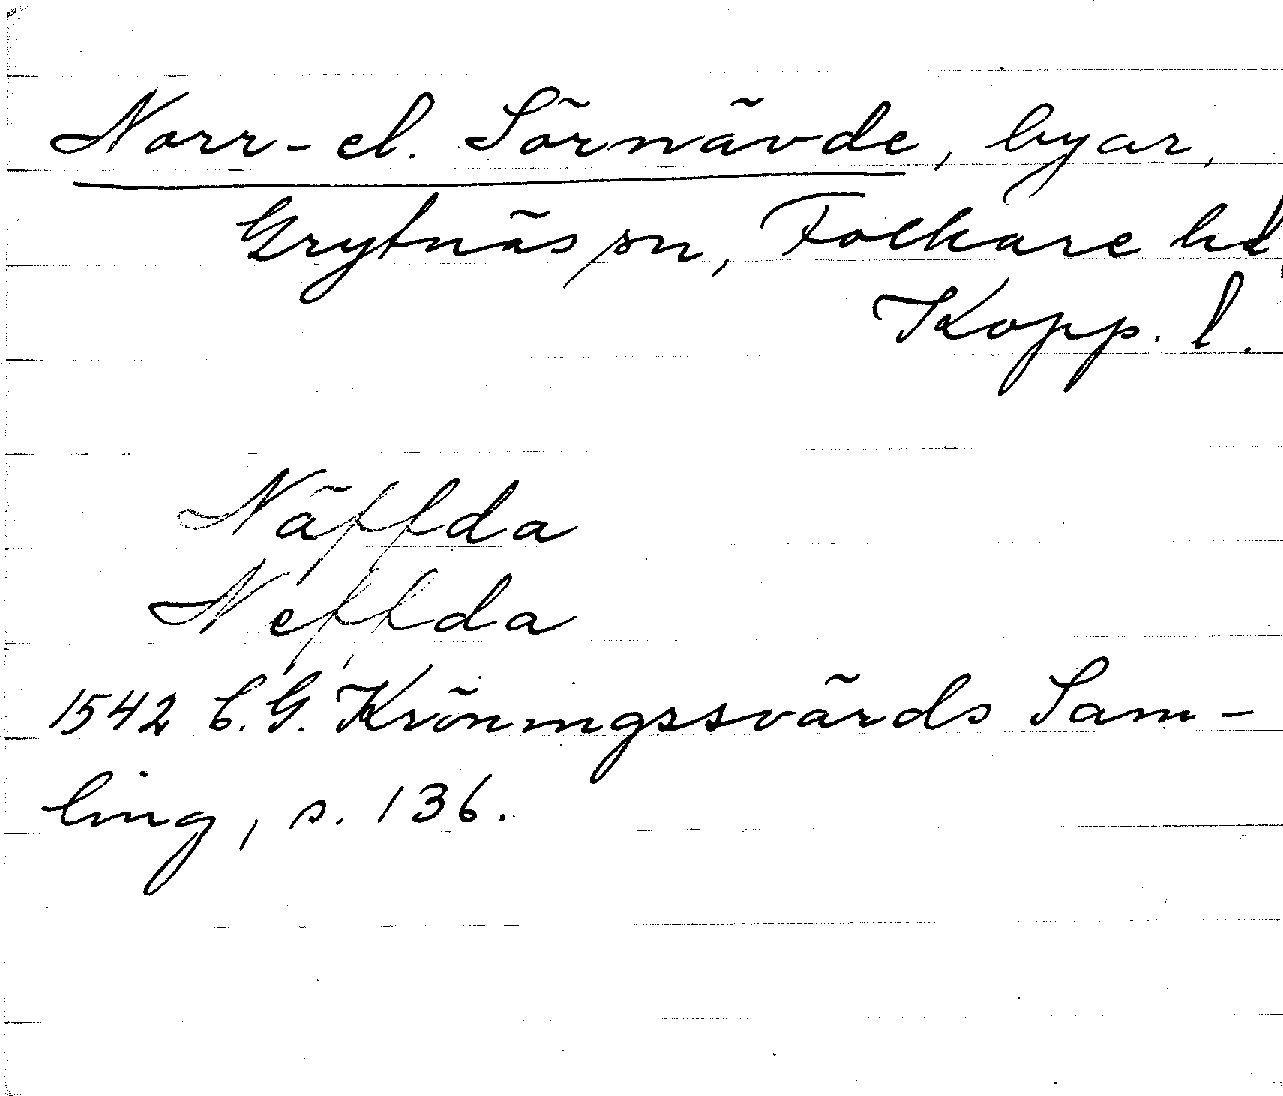 Norr- el. Sörnävde, byar,
Grytnäs sn, Folkare hd,
Kopp. l.
Näffda
Neffda
1542 C.G. Kröningssvärds Sam-
ling, s. 136.